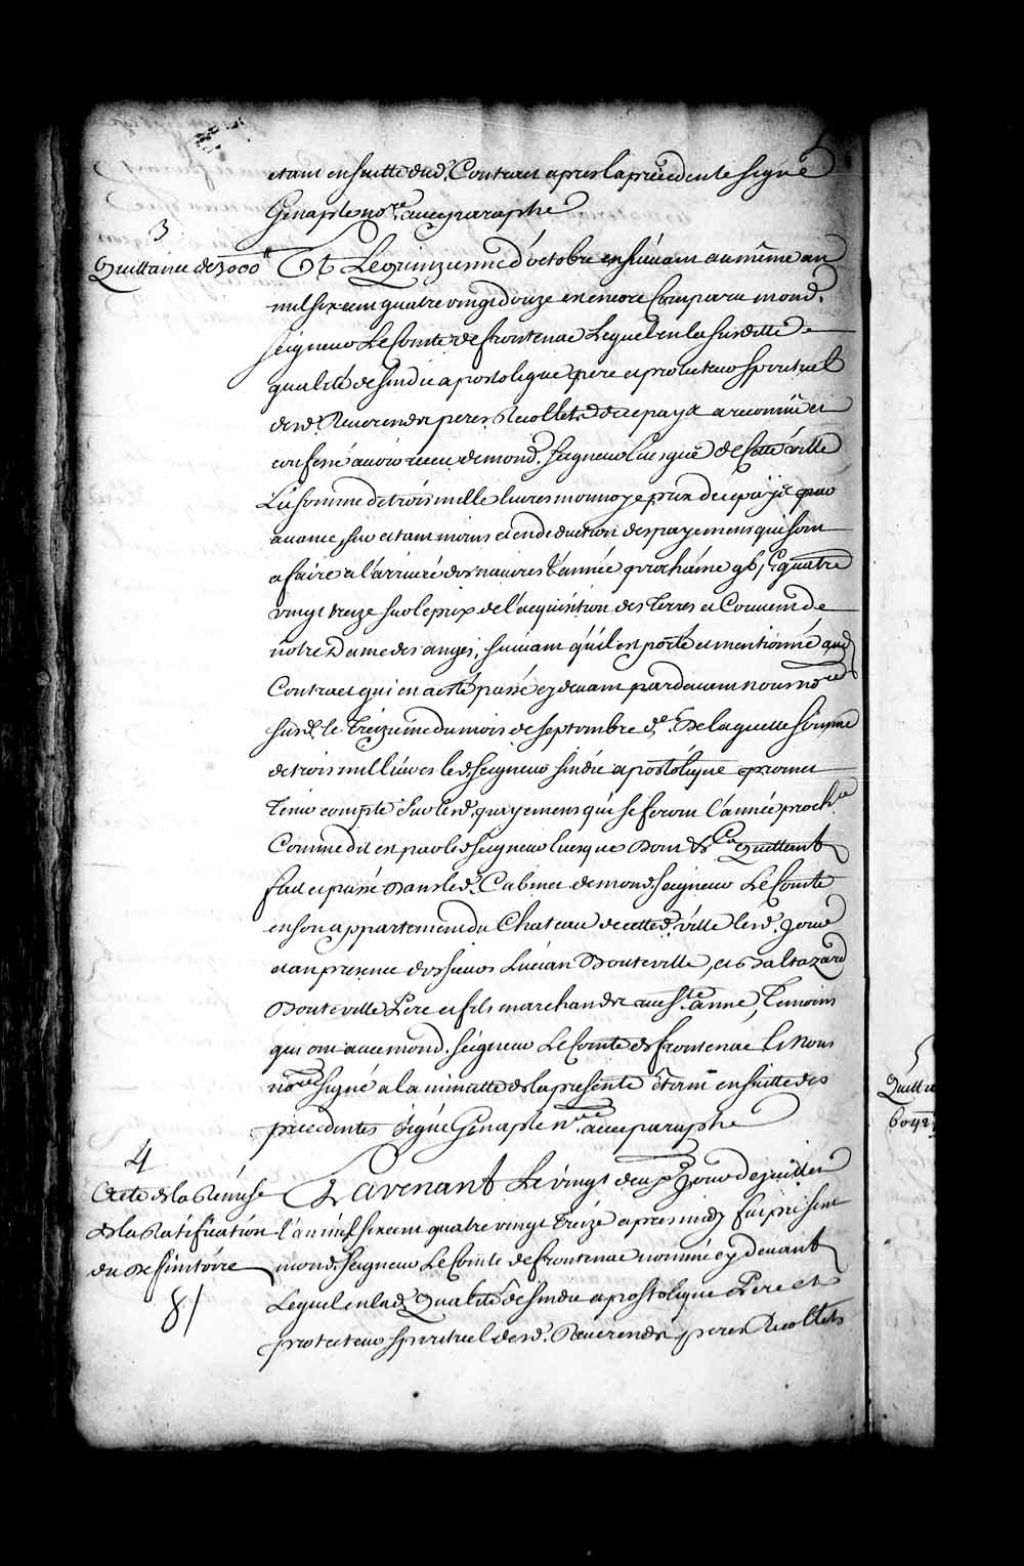 etant ensuitte dud. Contract apres la precedente signé
Genaple nore. avec paraphe
3
Quittance de 3000lt
Et Le quinzieme d'octobre ensuivant au même an
mil six cent quatre vingt douze est encore Comparu mond.
seigneur Le Comte de frontenac Lequel en la susditte
qualité de sindic apostolique pere et protecteur spirituel
desd. Reverends peres Recollets de ce pays a reconnu et
confessé avoir receu de mond. seigneur L'evesque de Cette ville
La somme de trois mille livres monnoye prix de ce pays par
avance, sur et tant moins et en deduction des payemens qui sont
a faire a l'arrivée des navires L'année prochaine quatre
vingt treize sur le prix de l'acquisition des Terres et Couvent de
nôtre Dame des anges, suivant qu'il est porté et mentionné aud
Contract qui en a esté passé cy devant pardevant nous nore
susd. le Treizieme du mois de septembre der. De laquelle somme
de trois mil livres led. seigneur sindic apostolique promet
Tenir compte sur lesd. payemens qui se feront l'année proche.
Comme dit est par led. seigneur Evesque Dont &a Quittant &a
fait et passé Dans led. Cabinet de mond. seigneur Le Comte
en son appartement du Chateau de cetted. ville lesd. Jour
et an presence des sieurs Lucian Bouteville, et Baltazard
Bouteville Pere et fils marchands rue Ste. anne, Temoins
qui ont avec mond. seigneur Le Comte de frontenac Et Nous
nore signé a la minutte de la presente étant ensuitte des
precedentes signé Genaple nre. avec paraphe
4
Acte de la Remise
de la Ratification
du Definitoire
8/
Et avenant Le vingt deux e. Jour de juillet
l'an mil six cent quatre vingt treize apres midy fut present
mond. seigneur Le Comte de frontenac nommé cy devant
Lequel en lad. Qualité de sindic apostolique Pere et
protecteur spirituel desd. Reverends peres Recollets
5
Quitt